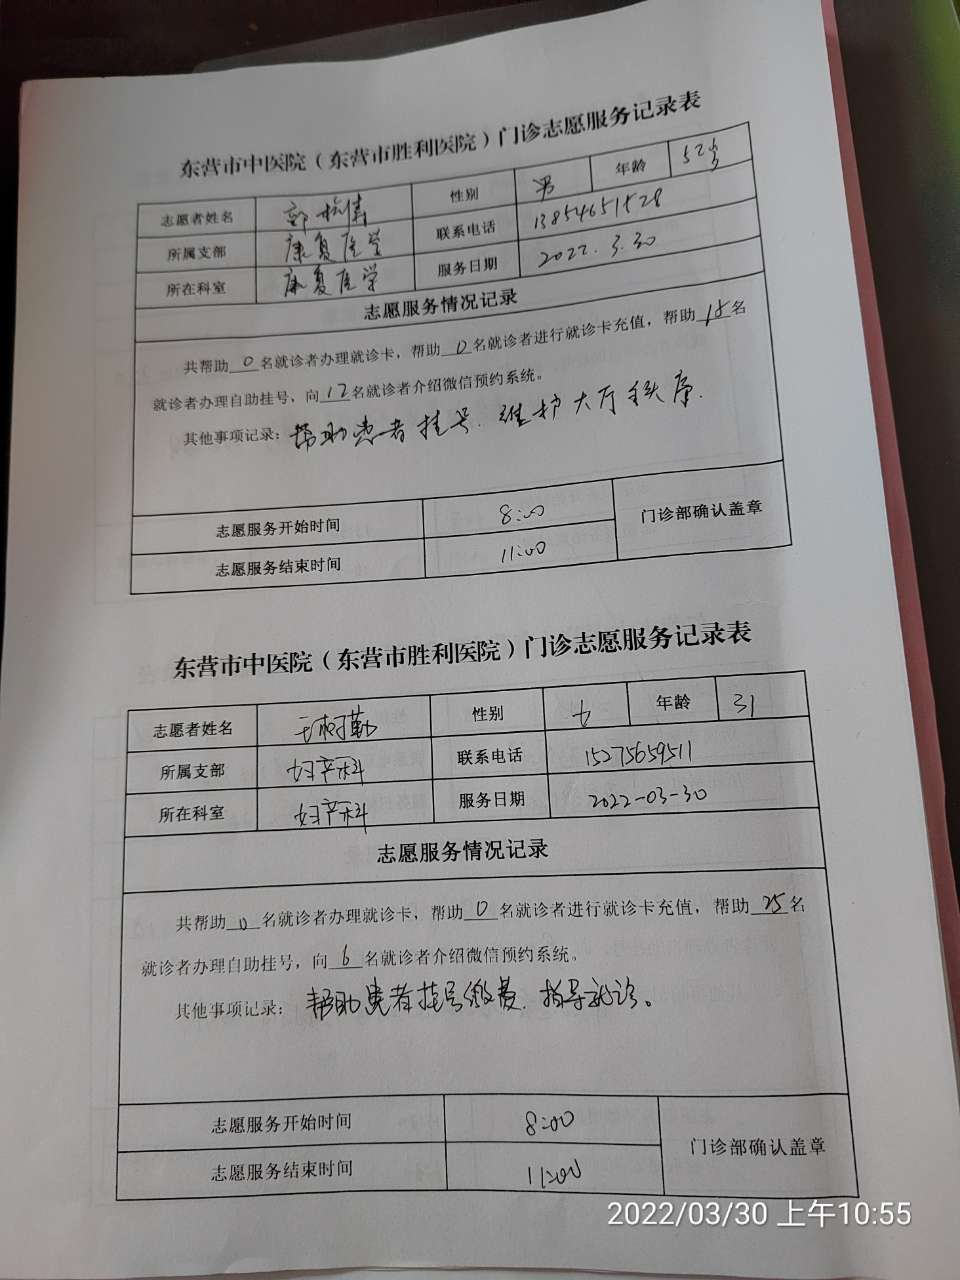 东营市中医院（东营市胜利医院）门诊志愿服务记录表
志愿者姓名 性别 男 年龄 52岁
所属支部 康复医学 联系电话 13854651528
所在科室 康复医学 服务日期 2022.3.30
志愿服务情况记录
共帮助0名就诊者办理就诊卡，帮助0名就诊者进行就诊卡充值，帮助18名
就诊者办理自助挂号，向12名就诊者介绍微信预约系统。
其他事项记录：帮助患者挂号.维护大厅秩序.
志愿服务开始时间 8:00 门诊部确认盖章
志愿服务结束时间 11:00
东营市中医院（东营市胜利医院）门诊志愿服务记录表
志愿者姓名 性别 女 年龄 31
所属支部 妇产科 联系电话 15275659511
所在科室 妇产科 服务日期 2022-03-30
志愿服务情况记录
共帮助0名就诊者办理就诊卡，帮助0名就诊者进行就诊卡充值，帮助25名
就诊者办理自助挂号，向6名就诊者介绍微信预约系统。
其他事项记录：帮助患者挂号缴费.指导就诊。
志愿服务开始时间 8:00 门诊部确认盖章
志愿服务结束时间 11:00
2022/03/30 上午10:55